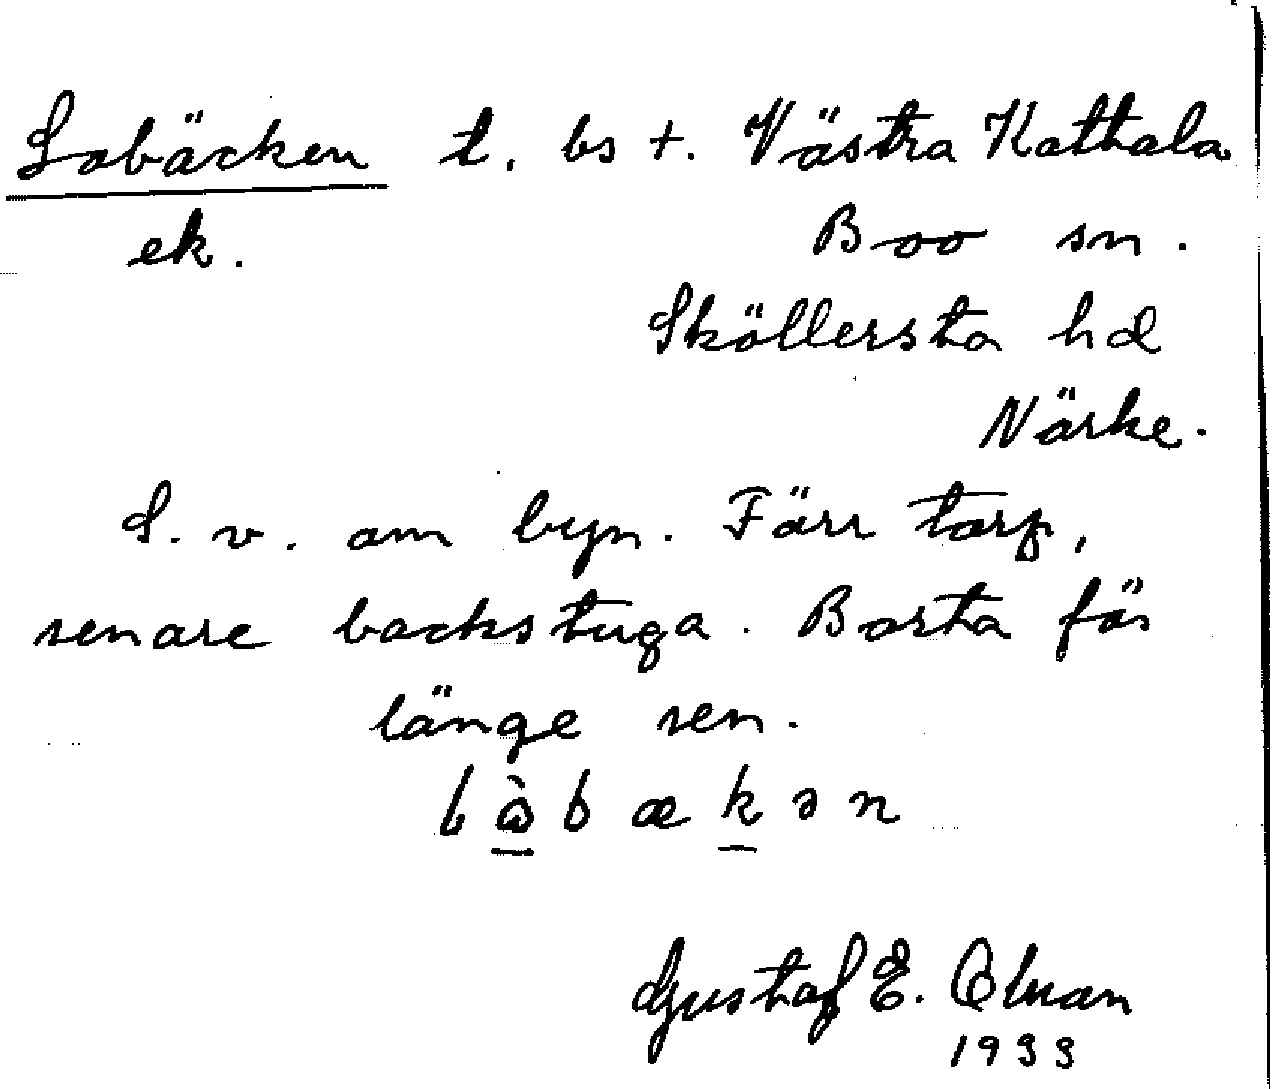 Sobäcken t. bs +. Västra Kathala
ek. Boo sn.
Sköllersta hd
Närke.
S. v. om byn. Förr torp,
senare backstuga. Borta för
länge sen.
Gustaf E.
1933